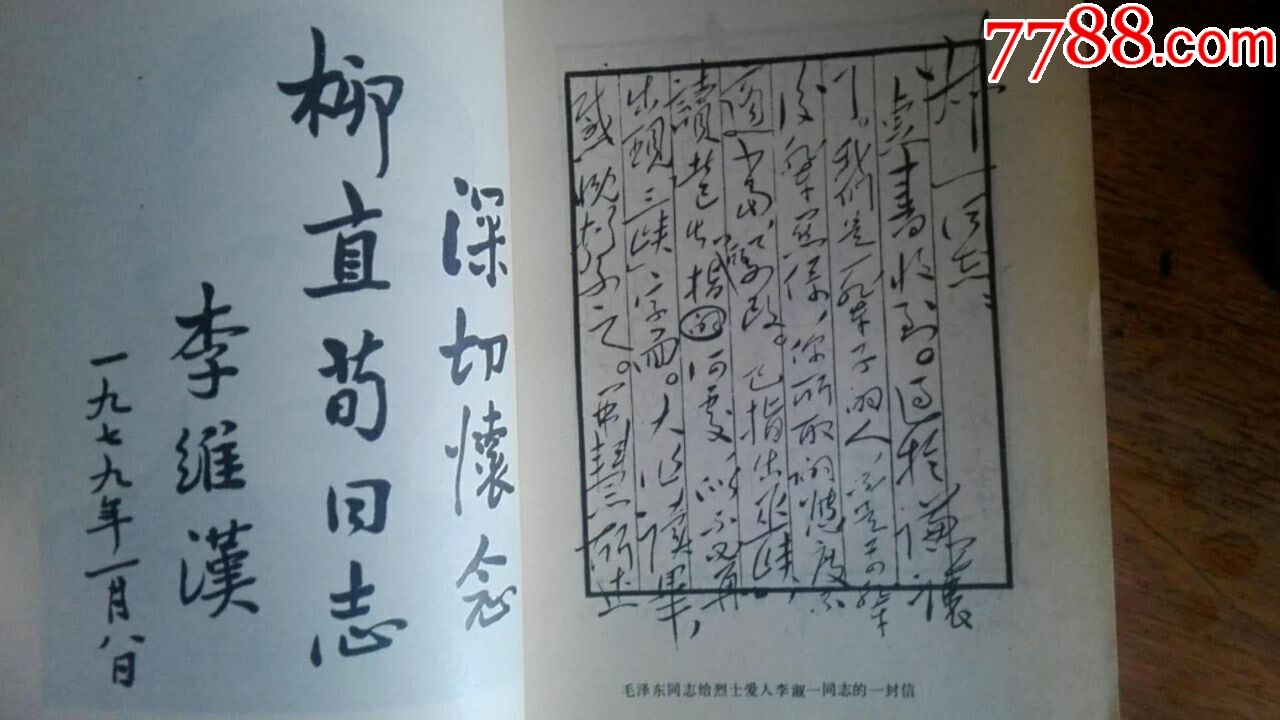 深切懷念
柳直荀同志
李維漢
一九七九年一月八日
淑一同志:
惠書收到。過於謙讓
了。我们是一辈子的人,不是前辈
後辈关係,你所取的態度不
適当,要改。已指出巫峡,
讀者所指何處,似不必再
出現三峡字面。大作讀畢,
感慨系之。开慧所述
毛泽东同志给烈士爱人李淑一同志的一封信
7788.com